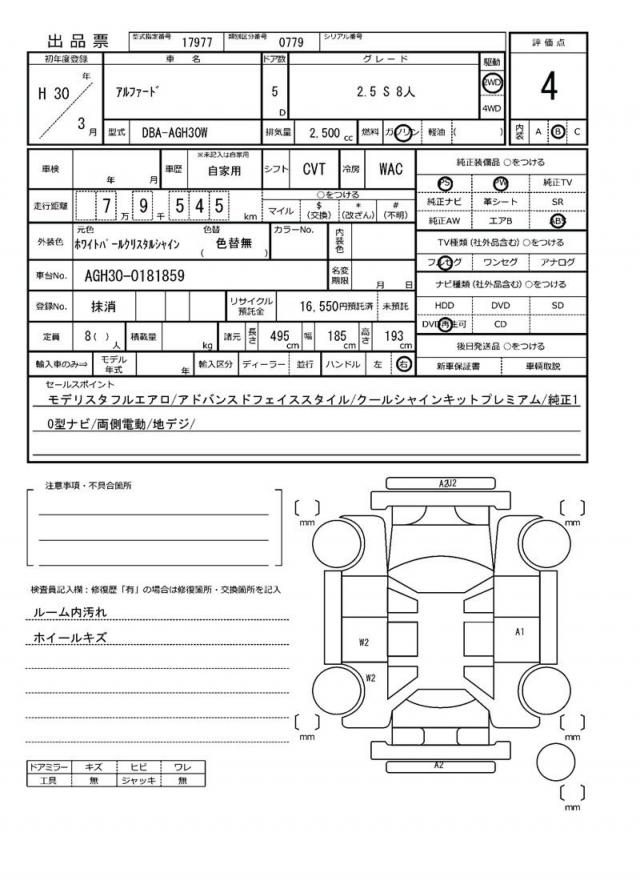 出品票 型式指定番号 17977 類別区分番号 0779 シリアル番号
評価点
4
内装 A B C
初年度登録 車名 ドア数 グレード 駆動
H 30 年 3 月
アルファード 5 D 2.5 S 8人 2WD 4WD
型式 DBA-AGH30W 排気量 2,500 cc 燃料 ガソリン 軽油 ( )
車検 年 月 車歴 ※未記入は自家用 自家用 シフト CVT 冷房 WAC
走行距離 7 万 9 千 5 4 5 km
○をつける
マイル $(交換) *(改ざん) #(不明)
外装色 元色 ホワイトパールクリスタルシャイン 色替 ( 色替無 ) カラーNo. 内装色
車台No. AGH30-0181859 名変期限 月 日
登録No. 抹消 リサイクル預託金 16,550円預託済 未預託
定員 8( ) 人 積載量 kg 諸元 長さ 495 cm 幅 185 cm 高さ 193 cm
輸入車のみ⇒ モデル年式 年 輸入区分 ディーラー 並行 ハンドル 左 右
純正装備品 ○をつける
PS PW 純正TV
純正ナビ 革シート SR
純正AW エアB ABS
TV種類(社外品含む)○をつける
フルセグ ワンセグ アナログ
ナビ種類(社外品含む)○をつける
HDD DVD SD
DVD再生可 CD
後日発送品 ○をつける
新車保証書 車輌取説
セールスポイント
モデリスタフルエアロ/アドバンスドフェイススタイル/クールシャインキットプレミアム/純正1
0型ナビ/両側電動/地デジ/
注意事項・不具合箇所
検査員記入欄：修復歴「有」の場合は修復箇所・交換箇所を記入
ルーム内汚れ
ホイールキズ
ドアミラー キズ ヒビ ワレ
工具 無 ジャッキ 無
A2U2
[ ] mm
[ ] mm
W2
A1
W2
[ ] mm
[ ] mm
A2
[ ] mm